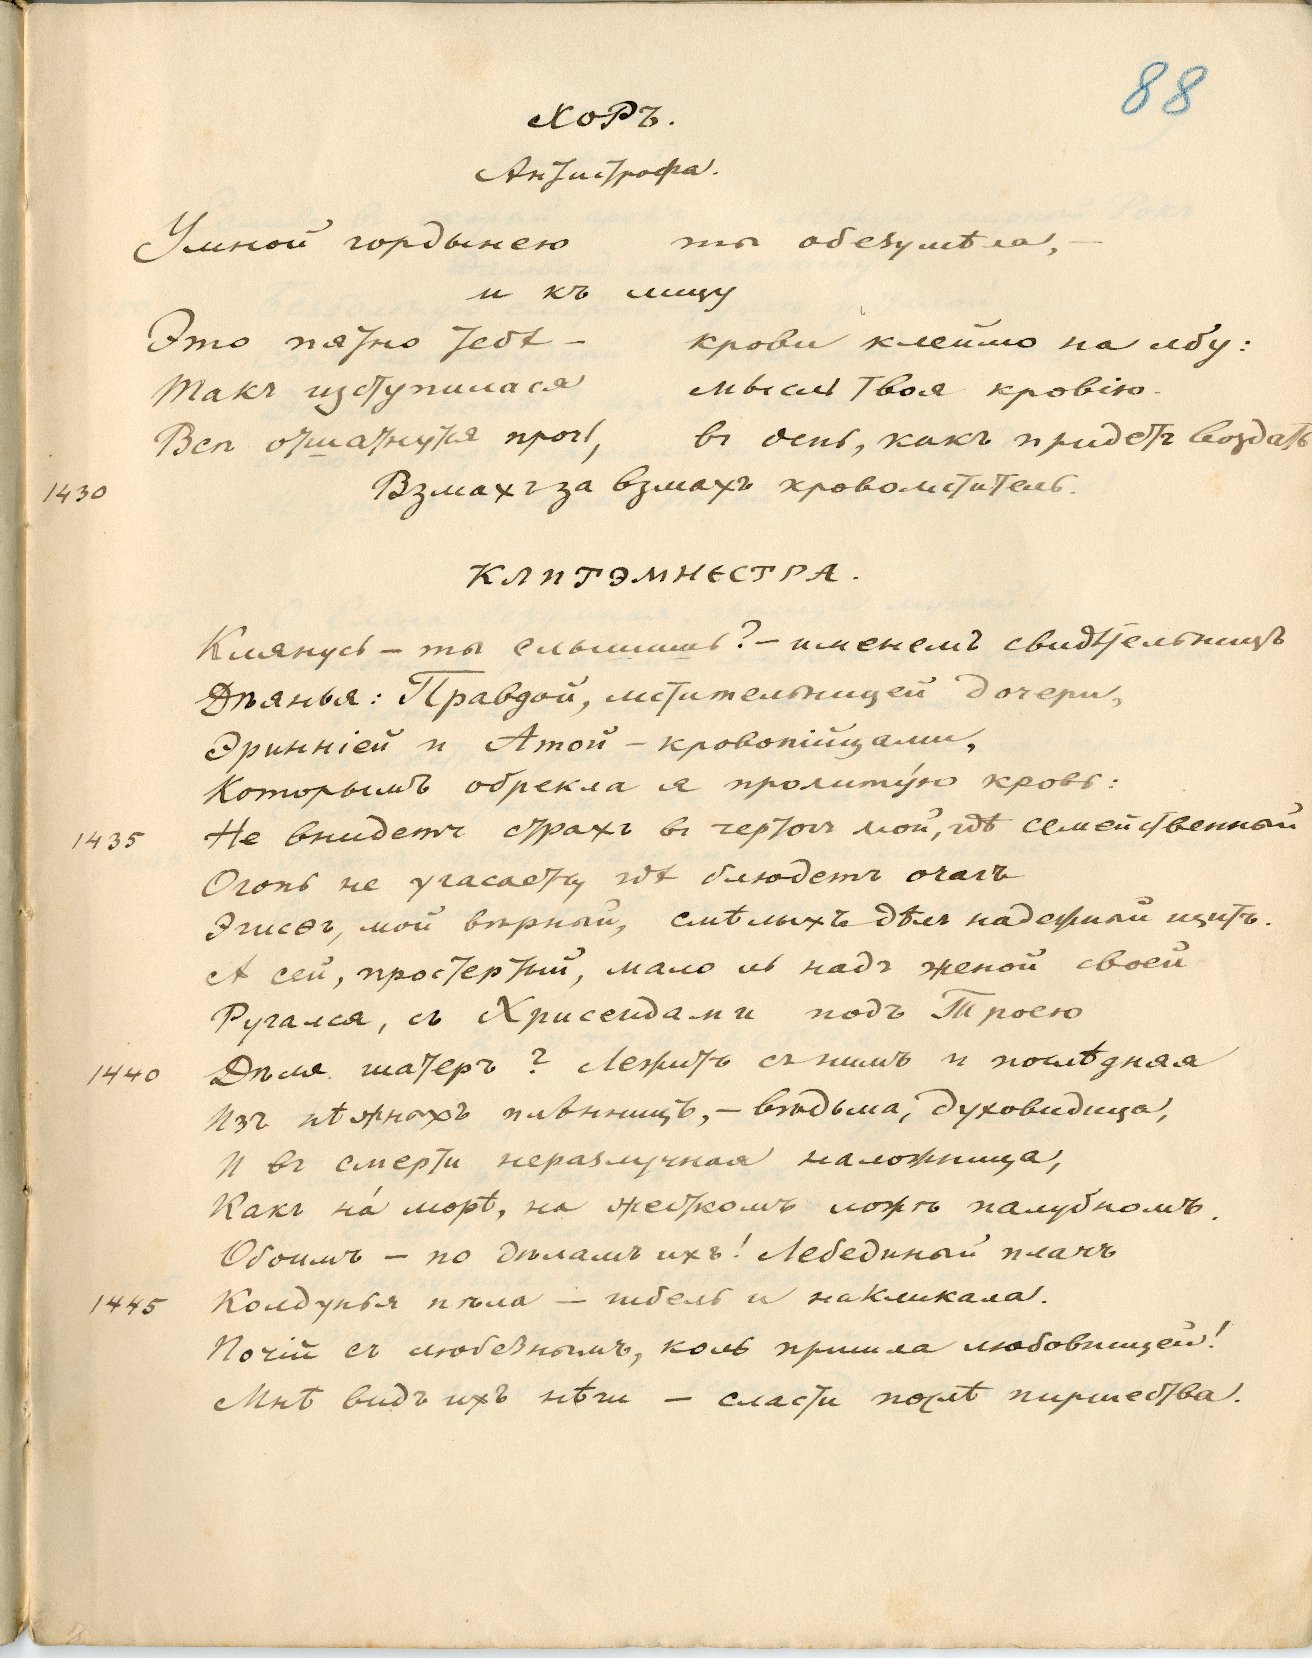 88
ХОРЪ.
Антистрофа.
Умной гордынею ты обезумѣла, —
и къ лицу
Это пятно тебѣ — крови клеймо на лбу:
Такъ изступилася мысль твоя кровію.
Всѣ отшатнутся прочь, въ день, какъ придетъ воздать
1430 Взмахъ за взмахъ кровомститель.
КЛИТЭМНЕСТРА.
Клянусь — ты слышишь? — именемъ свидѣтельницъ
Дѣянья: Правдой, мстительницей дочери,
Эринніей и Атой — кровопійцами,
Которымъ обрекла я пролиту́ю кровь:
1435 Не внидетъ страхъ въ чертогъ мой, гдѣ семейственный
Огонь не угасаетъ, гдѣ блюдетъ очагъ
Эгисѳъ, мой вѣрный, смѣлыхъ дѣлъ надежный щитъ.
А сей, простертый, мало ль надъ женой своей
Ругался, съ Хрисеидами подъ Троею
1440 Дѣля шатеръ? Лежитъ съ нимъ и послѣдняя
Изъ нѣжныхъ плѣнницъ, — вѣдьма, духовидица,
И въ смерти неразлучная наложница,
Какъ на́ морѣ, на жесткомъ ложѣ палубномъ.
Обоимъ — по дѣламъ ихъ! Лебединый плачъ
1445 Колдунья пѣла — гибель и накликала.
Почій съ любезнымъ, коль пришла любовницей!
Мнѣ видъ ихъ нѣги — сласти послѣ пиршества.